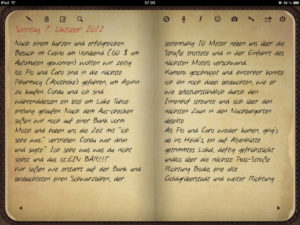 iPad
07:00
Sonntag 7. Oktober 2012
Nach einem kurzen und erfolgreichen
Besuch im Casino am Vorabend (60 $ am
Automaten gewonnen) wollten wir zeitig
ist Flo und Caro sind in die nächste
Pharmacy (Apotheke) gefahren, um Aspirin
zu kaufen. Coralu und ich sind
währenddessen am See am Lake Tahoe
entlang gelaufen. Nach dem Aus-checken
saßen wir noch auf einer Bank vorm
Motel und haben uns die Zeit mit "ich
sehe was" vertrieben. Coralu war dran
und sagte:" Ich sehe was was du nicht
siehst und das ist..EIN BÄR!!!"
Wir saßen wie erstarrt auf der Bank und
beobachteten einen Schwarzbären, der
seelenruhig 10 Meter neben uns über die
Straße trottete und in der Einfahrt des
nächsten Motels verschwand.
Kamera geschnappt und hinterher konnte
ich ihn noch dabei beobachten, wie er
sich ungewöhnlich durch den
Innenhof streunte und sich über den
nächsten Zaun in den Nachbargarten
abseilte.
Als Flo und Caro wieder kamen, ging's
ab ins Heidi's, ein auf Alpenhütte
getrimmtes Lokal, deftig gefrühstückt
und los über die nächste Pass-Straße
Richtung Bodie eine alte
Goldgräberstadt und weiter Richtung